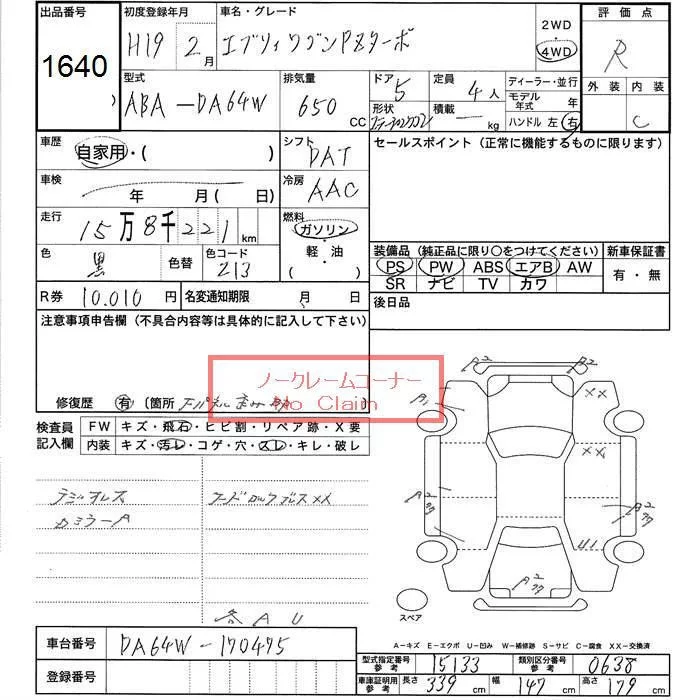 出品番号 初度登録年月 車名・グレード 2WD 評価点
1640 H19 2月 エブリィワゴンPZターボ 4WD R
型式 排気量 ドア 定員 ディーラー・並行 外装 内装
ABA-DA64W 650 CC 5 4人 モデル年式 年 C
形状 積載 kg ハンドル 左 右
車歴 自家用・( ) シフト DAT セールスポイント (正常に機能するものに限ります)
車検 年 月( 日) 冷房 AAC
走行 15万8千221km 燃料 ガソリン・軽・油 ( )
色 黒 色替 色コード Z13 装備品 (純正品に限り○をつけてください) 新車保証書
PS PW ABS エアB AW 有・無
SR ナビ TV カワ
R券 10.010円 名変通知期限 月 日 後日品
注意事項申告欄 (不具合内容等は具体的に記入して下さい)
ノークレームコーナー
No Claim
修復歴 有 〔箇所
検査員記入欄 FW キズ・飛石・ヒビ割・リペア跡・X要
内装 キズ・汚レ・コゲ・穴・スレ・キレ・破レ
A2
A1
XX
XX
A2
A2
U1
A2
スペア
各AU
A-キズ E-エクボ U-凹み W-補修跡 S-サビ C-腐食 XX-交換済
車台番号 DA64W-170475
登録番号
型式指定番号参考 15133 類別区分番号参考 0638
車庫証明用参考 長さ 339cm 幅 147cm 高さ 179cm